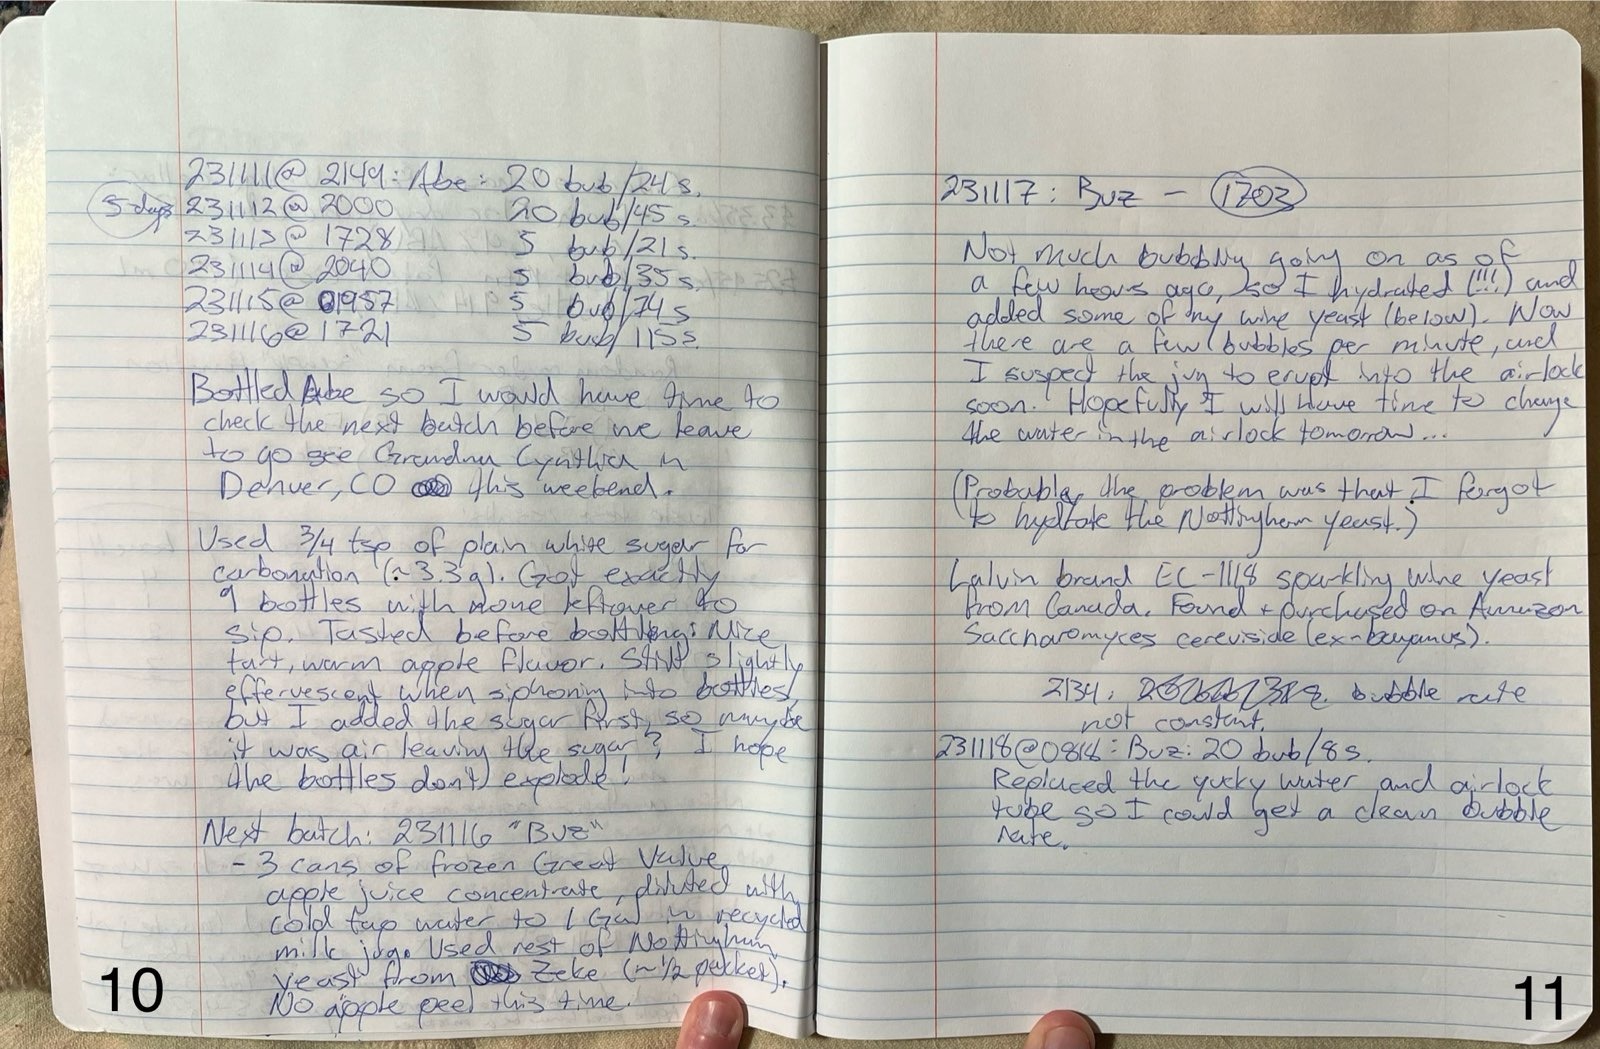 231111@ 2149: Abe: 20 bub/24 s.
5 days 231112@ 2000 20 bub/45 s
231113@ 1728 5 bub/21 s.
231114@ 2040 5 bub/35 s,
231115@ 1957 5 bub/74 s
231116@ 1721 5 bub/ 115 s.
Bottled Abe so I would have time to
check the next batch before we leave
to go see Grandma Cynthia in
Denver, CO this weekend.
Used 3/4 tsp of plain white sugar for
carbonation (~3.3 g). Got exactly
9 bottles with none leftover to
sip. Tasted before bottling: Nice
tart, warm apple flavor. Still slightly
effervescent when siphoning into bottles,
but I added the sugar first, so maybe
it was air leaving the sugar? I hope
the bottles don't explode!
Next batch: 231116 "Buz"
- 3 cans of frozen Great Value
apple juice concentrate, diluted with
cold tap water to 1 Gal in recycled
milk jug. Used rest of Nottingham
yeast from Zeke (~1/2 packet).
No apple peel this time.
10
231117: Buz - 1703
Not much bubbling going on as of
a few hours ago, so I hydrated (!!!) and
added some of my wine yeast (below). Now
there are a few bubbles per minute, and
I suspect the jug to erupt into the airlock
soon. Hopefully I will have time to change
the water in the airlock tomorrow...
(Probably the problem was that I forgot
to hydrate the Nottingham yeast.)
Lalvin brand EC-1118 sparkling wine yeast
from Canada. Found + purchased on Amazon
Saccharomyces cereviside (ex-bayanus).
2134: bubble rate
not constant.
231118@0814: Buz: 20 bub/8 s.
Replaced the yucky water and airlock
tube so I could get a clean bubble
rate.
11